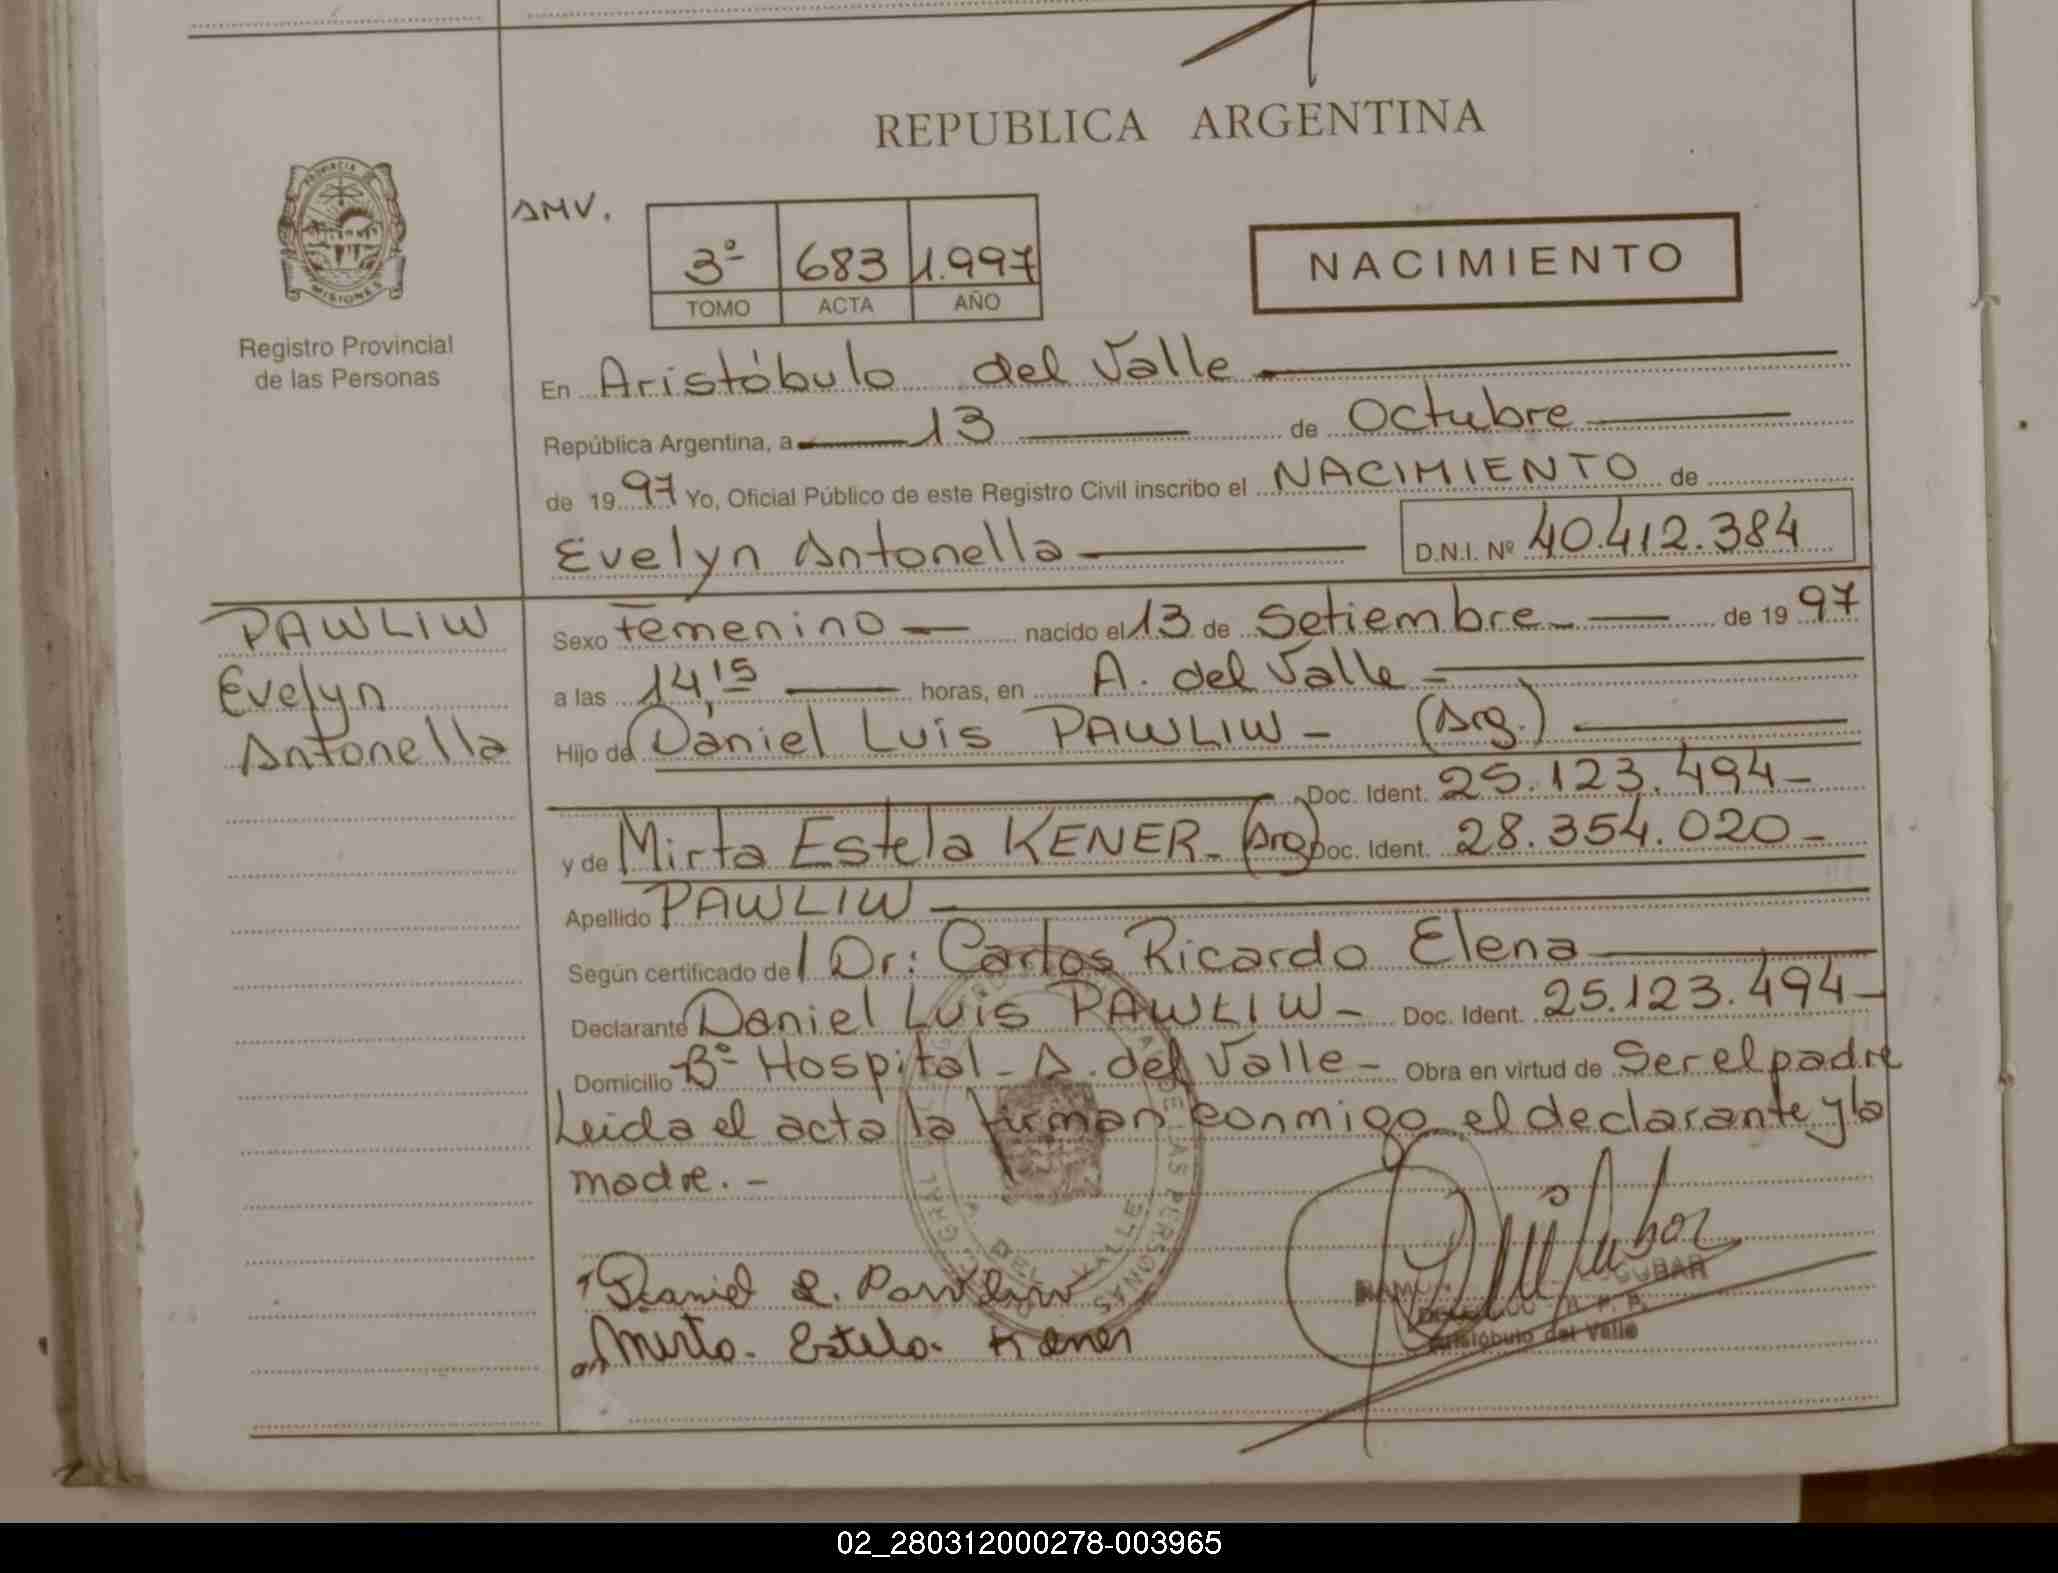 REPUBLICA ARGENTINA
PROVINCIA DE
MISIONES
Registro Provincial
de las Personas
AMV.
3º 683 1.997
TOMO ACTA AÑO
NACIMIENTO
En Aristóbulo del Valle
República Argentina, a 13 de Octubre
de 1997 Yo, Oficial Público de este Registro Civil inscribo el NACIMIENTO de
Evelyn Antonella D.N.I. Nº 40.412.384
PAWLIW
Evelyn
Antonella
Sexo Femenino nacido el 13 de Setiembre de 1997
a las 14,15 horas, en A. del Valle
Hijo de Daniel Luis PAWLIW (Arg.)
Doc. Ident. 25.123.494
y de Mirta Estela KENER (Arg) Doc. Ident. 28.354.020
Apellido PAWLIW
Según certificado de Dr: Carlos Ricardo Elena
Declarante Daniel Luis PAWLIW Doc. Ident. 25.123.494
Domicilio Bº Hospital - A. del Valle Obra en virtud de Ser el padre
Leida el acta la firman conmigo el declarante y la
madre.-
Daniel L. Pawliw
Mirta Estela Kener
ESCOBAR
Aristóbulo del Valle
02_280312000278-003965